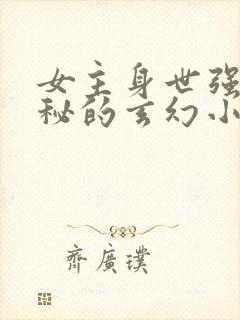 女主身世强
秘的玄幻小
齐广璞